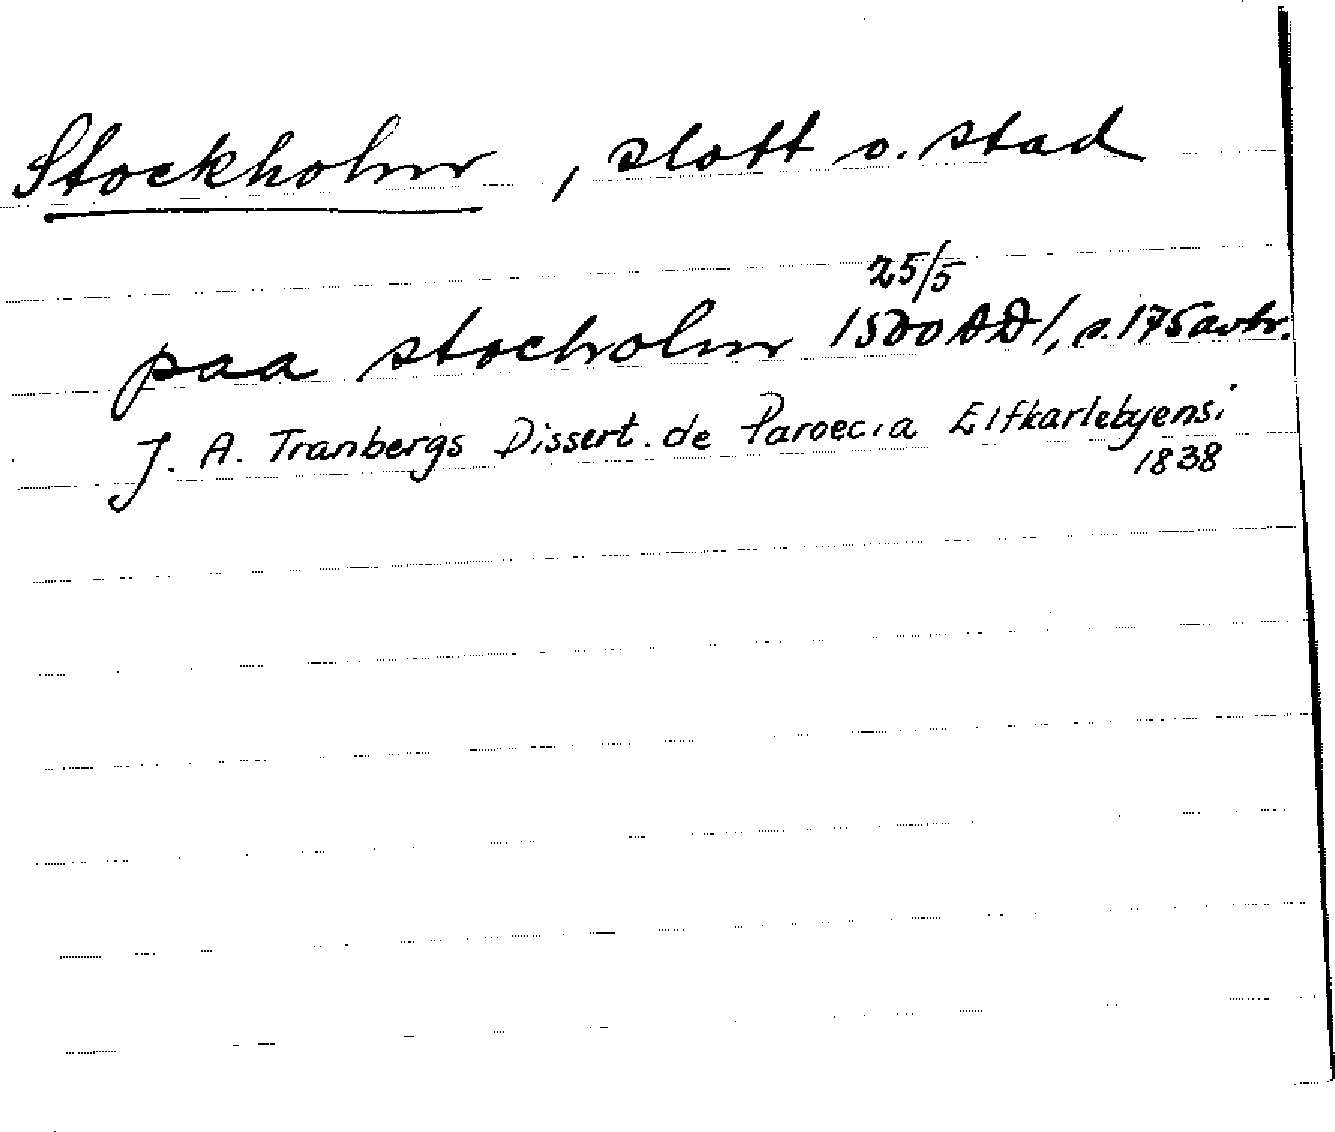 Stockholm, slott o. stad
paa stocholm 25/5 1500 AD/, s. 175 avtr.
J. A. Tranbergs Dissert. de Paroecia Elfkarlebyensi
1838